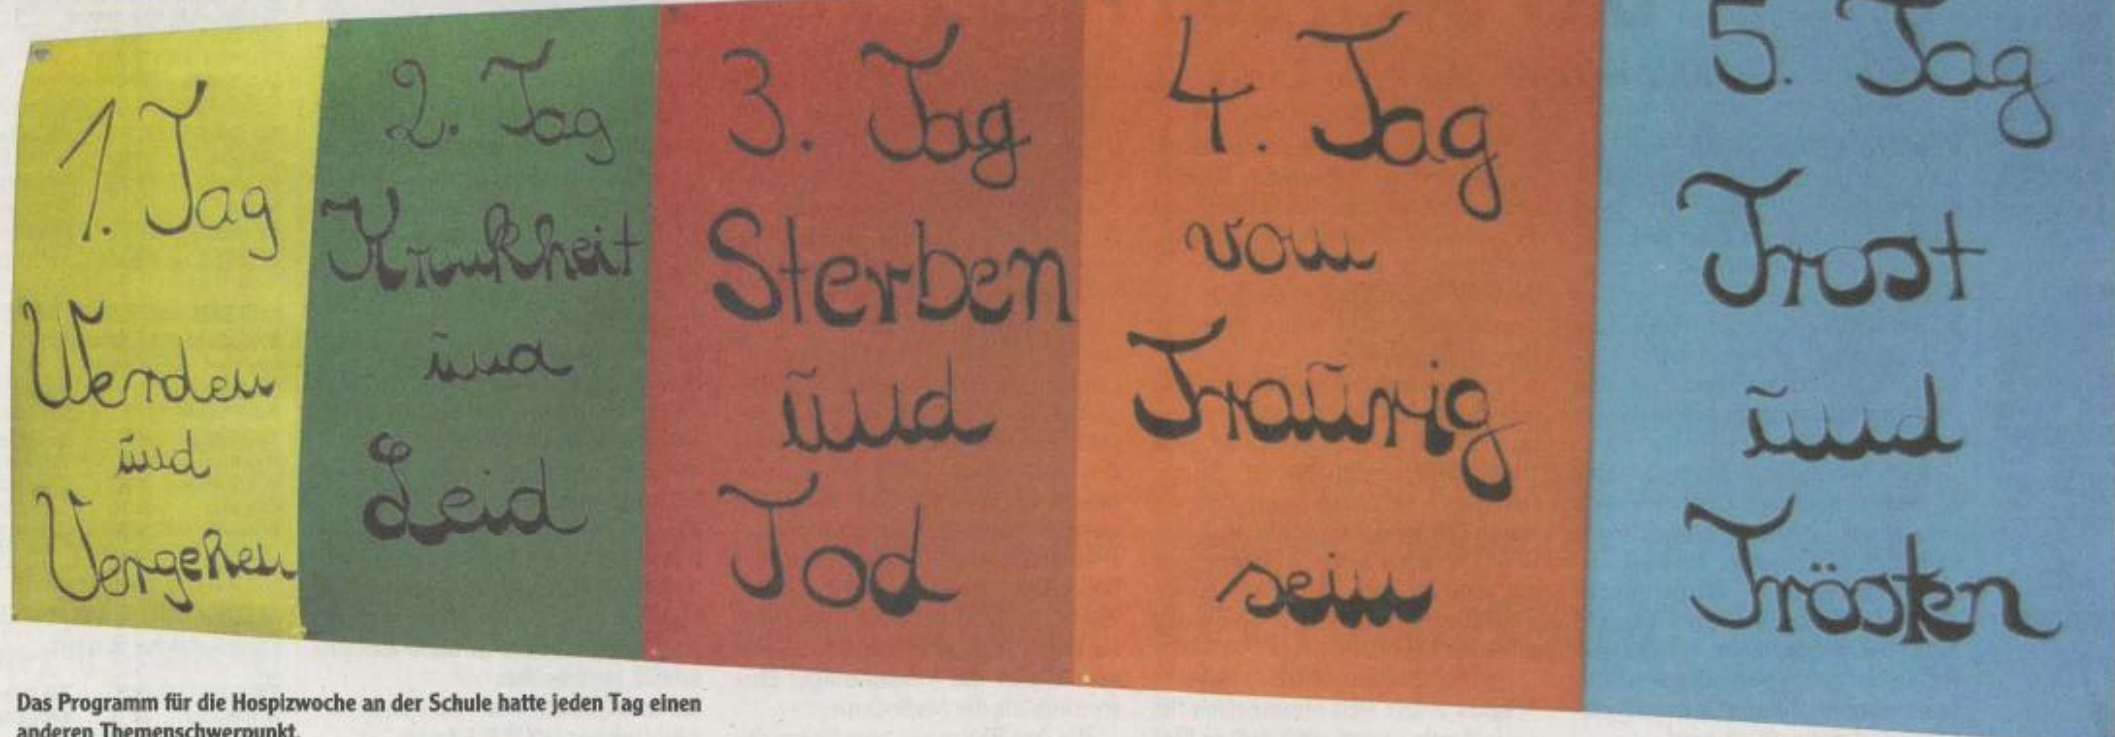 1. Tag
Werden
und
Vergehen
2. Tag
Krankheit
und
Leid
3. Tag
Sterben
und
Tod
4. Tag
vom
Traurig
sein
5. Tag
Trost
und
Trösten
Das Programm für die Hospizwoche an der Schule hatte jeden Tag einen
anderen Themenschwerpunkt.